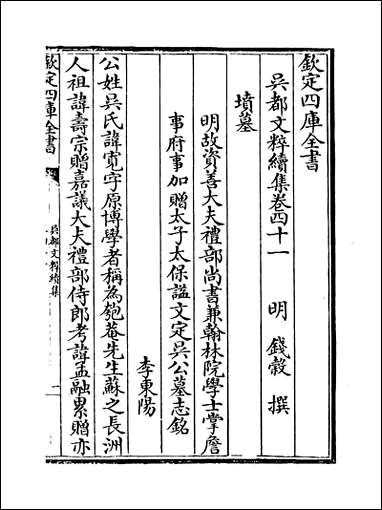 欽定四庫全書
吳都文粹續集卷四十一
明 錢榖 撰
墳墓
明故資善大夫禮部尚書兼翰林院學士掌詹
事府事加贈太子太保諡文定吳公墓志銘
李東陽
公姓吳氏諱寛字原博學者稱為匏菴先生蘇之長洲
人祖諱壽宗贈嘉議大夫禮部侍郎考諱孟融累贈亦
欽定四庫全書
吳都文粹續集